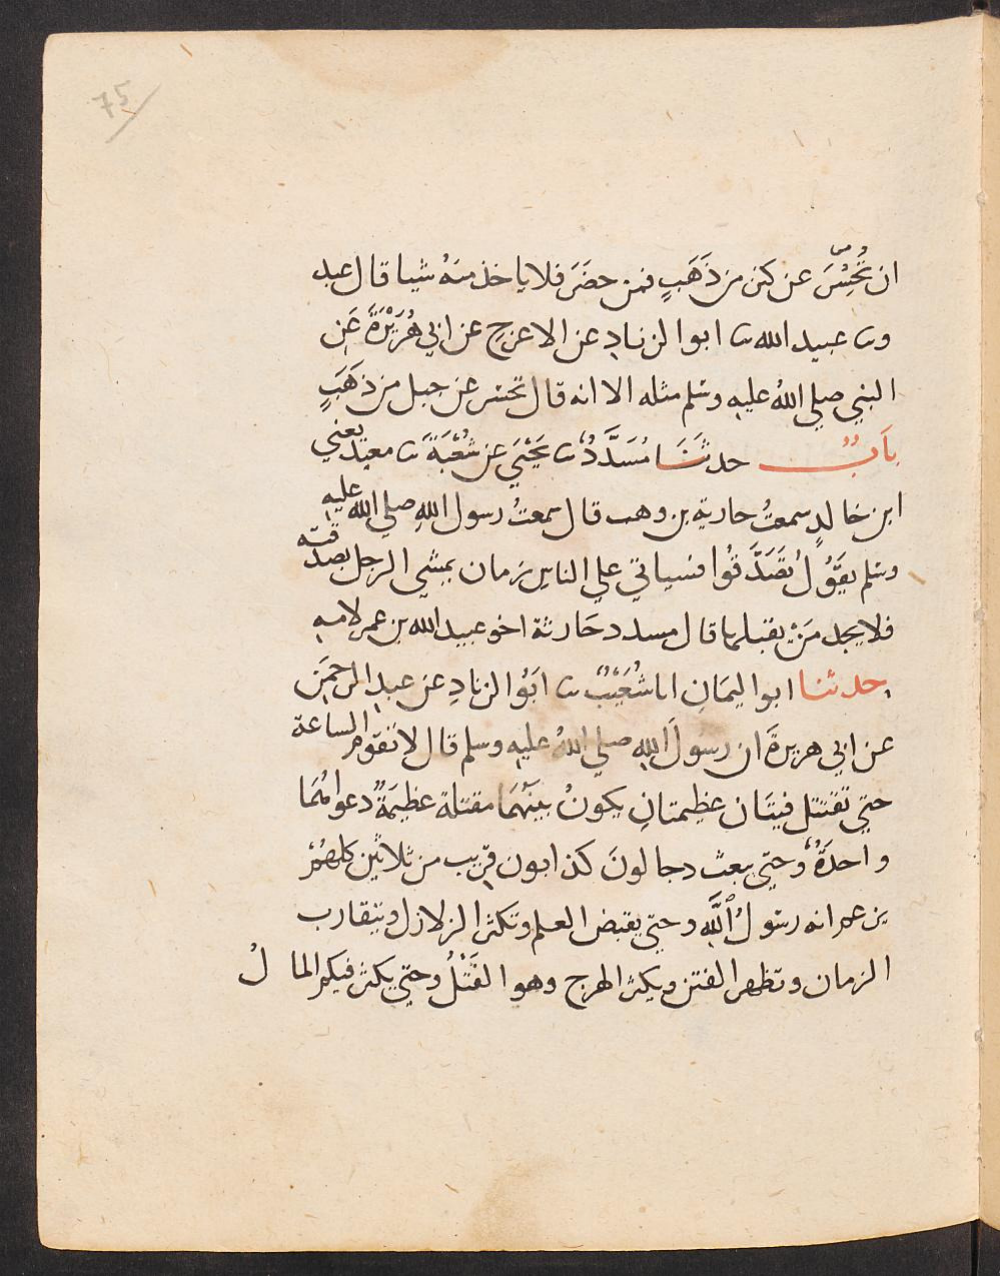 75
ان تُحْسِرَ عن كنز من ذَهَبٍ فمن حضَرَ فلا ياخذ منهُ شيا قال عبد
وثنا عبيد الله ثنا ابوا لزنادِ عن الاعرج عن ابي هُرَيْرَةَ عَنِ
النبي صلي اللهُ عليه وسلم مثله الا انه قال تحسر عن جبل من ذهَبٍ
بَابٌ حدثَنَا مُسَدَّدٌ ثنا يَحْيَي عن شُعْبَةَ ثنا معبد يعني
ابن خالدٍ سمعتُ حارثة بن وهب قال سمعتُ رسول اللهِ صلي الله عليه
وسلم يقَوُلُ تَصَدَّقُوا فسياتي علي الناس زمان يمشي الرجل بصدقته
فلا يجد مَنْ يقبلها قال مسدد حَارثة اخو عبيد الله بن عمر لامه
حدثنا ابوا ليمَانِ انا شُعَيْبٌ ثنا ابَوُا لزنادِ عن عبدِ الرحمَنِ
عن ابي هريرةَ ان رسولَ اللهِ صلي اللهُ عليهِ وسلم قال لا تقوم الساعة
حتي تقتتل فيتَان عظيمتانِ يكونُ بينَهُمَا مقتلة عظيمَةٌ دعواهُمَا
واحدَةٌ وحتي يبعث دجالونَ كذابون قريب من ثلاثين كلهُمْ
يزعم انه رسَولُ اللَّهِ وحتي يقبض العلم وتكثر الزلازل ويتقارب
الزمان وتظهر الفتن ويكثر الهرج وهوا لقَتْلُ وحتي يكثر فيكم المالُ